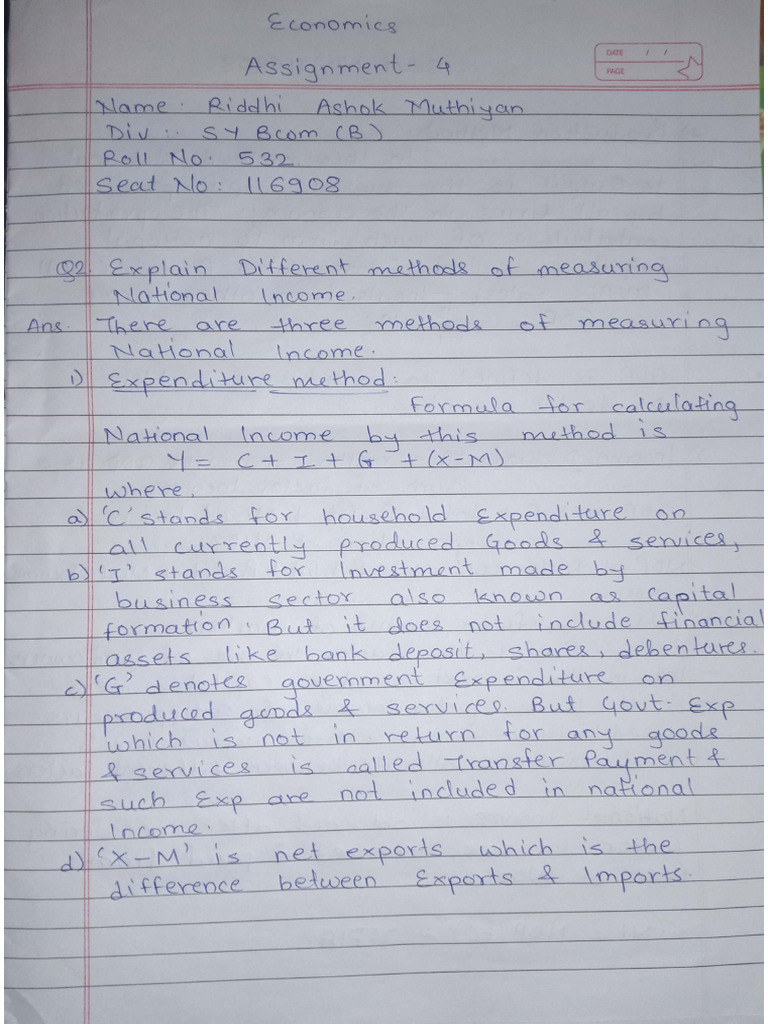 Economics
Assignment - 4
DATE / /
PAGE
Name : Riddhi Ashok Muthiyan
Div :- SY Bcom (B)
Roll No. 532
Seat No : 116908
Q2. Explain Different methods of measuring
National Income.
Ans. There are three methods of measuring
National Income.
1) Expenditure method :
Formula for calculating
National Income by this method is
Y = C + I + G + (X-M)
where,
a) 'C' stands for household Expenditure on
all currently produced Goods & services,
b) 'I' stands for Investment made by
business sector also known as capital
formation. But it does not include financial
assets like bank deposit, shares, debentures.
c) 'G' denotes government Expenditure on
produced goods & services. But Govt. Exp
which is not in return for any goods
& services is called Transfer Payment &
such Exp are not included in national
Income.
d) 'X-M' is net exports which is the
difference between Exports & Imports.